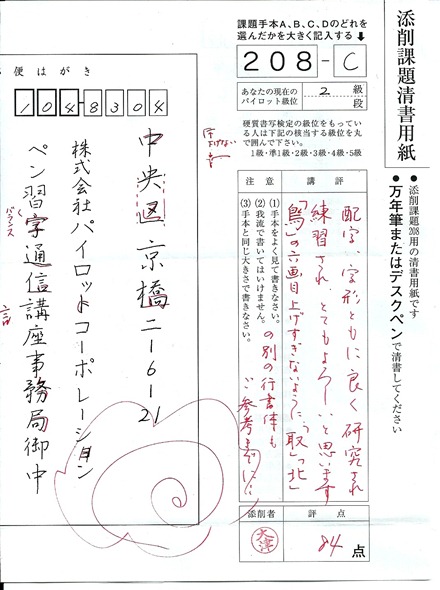 添削課題清書用紙
●添削課題208用の清書用紙です
●万年筆またはデスクペンで清書してください
課題手本A、B、C、Dのどれを
選んだかを大きく記入する
208-C
あなたの現在の
パイロット級位
2
級
段
硬質書写検定の級位をもってい
る人は下記の該当する級位を丸
で囲んで下さい。
1級・準1級・2級・3級・4級・5級
講評
配字、字形ともに良く研究され
練習され、とてもよろしいと思います
「鳥」の六画目上げすぎないように、「取」「北」
の別の行書体も
ご参考までに
注意
(1)手本をよく見て書きなさい。
(2)我流で書いてはいけません。
(3)手本と同じ大きさで書きなさい。
評点
84点
添削者
便はがき
104-8304
中央区京橋二-6-21
株式会社パイロットコーポレーション
ペン習字通信講座事務局御中
バランス